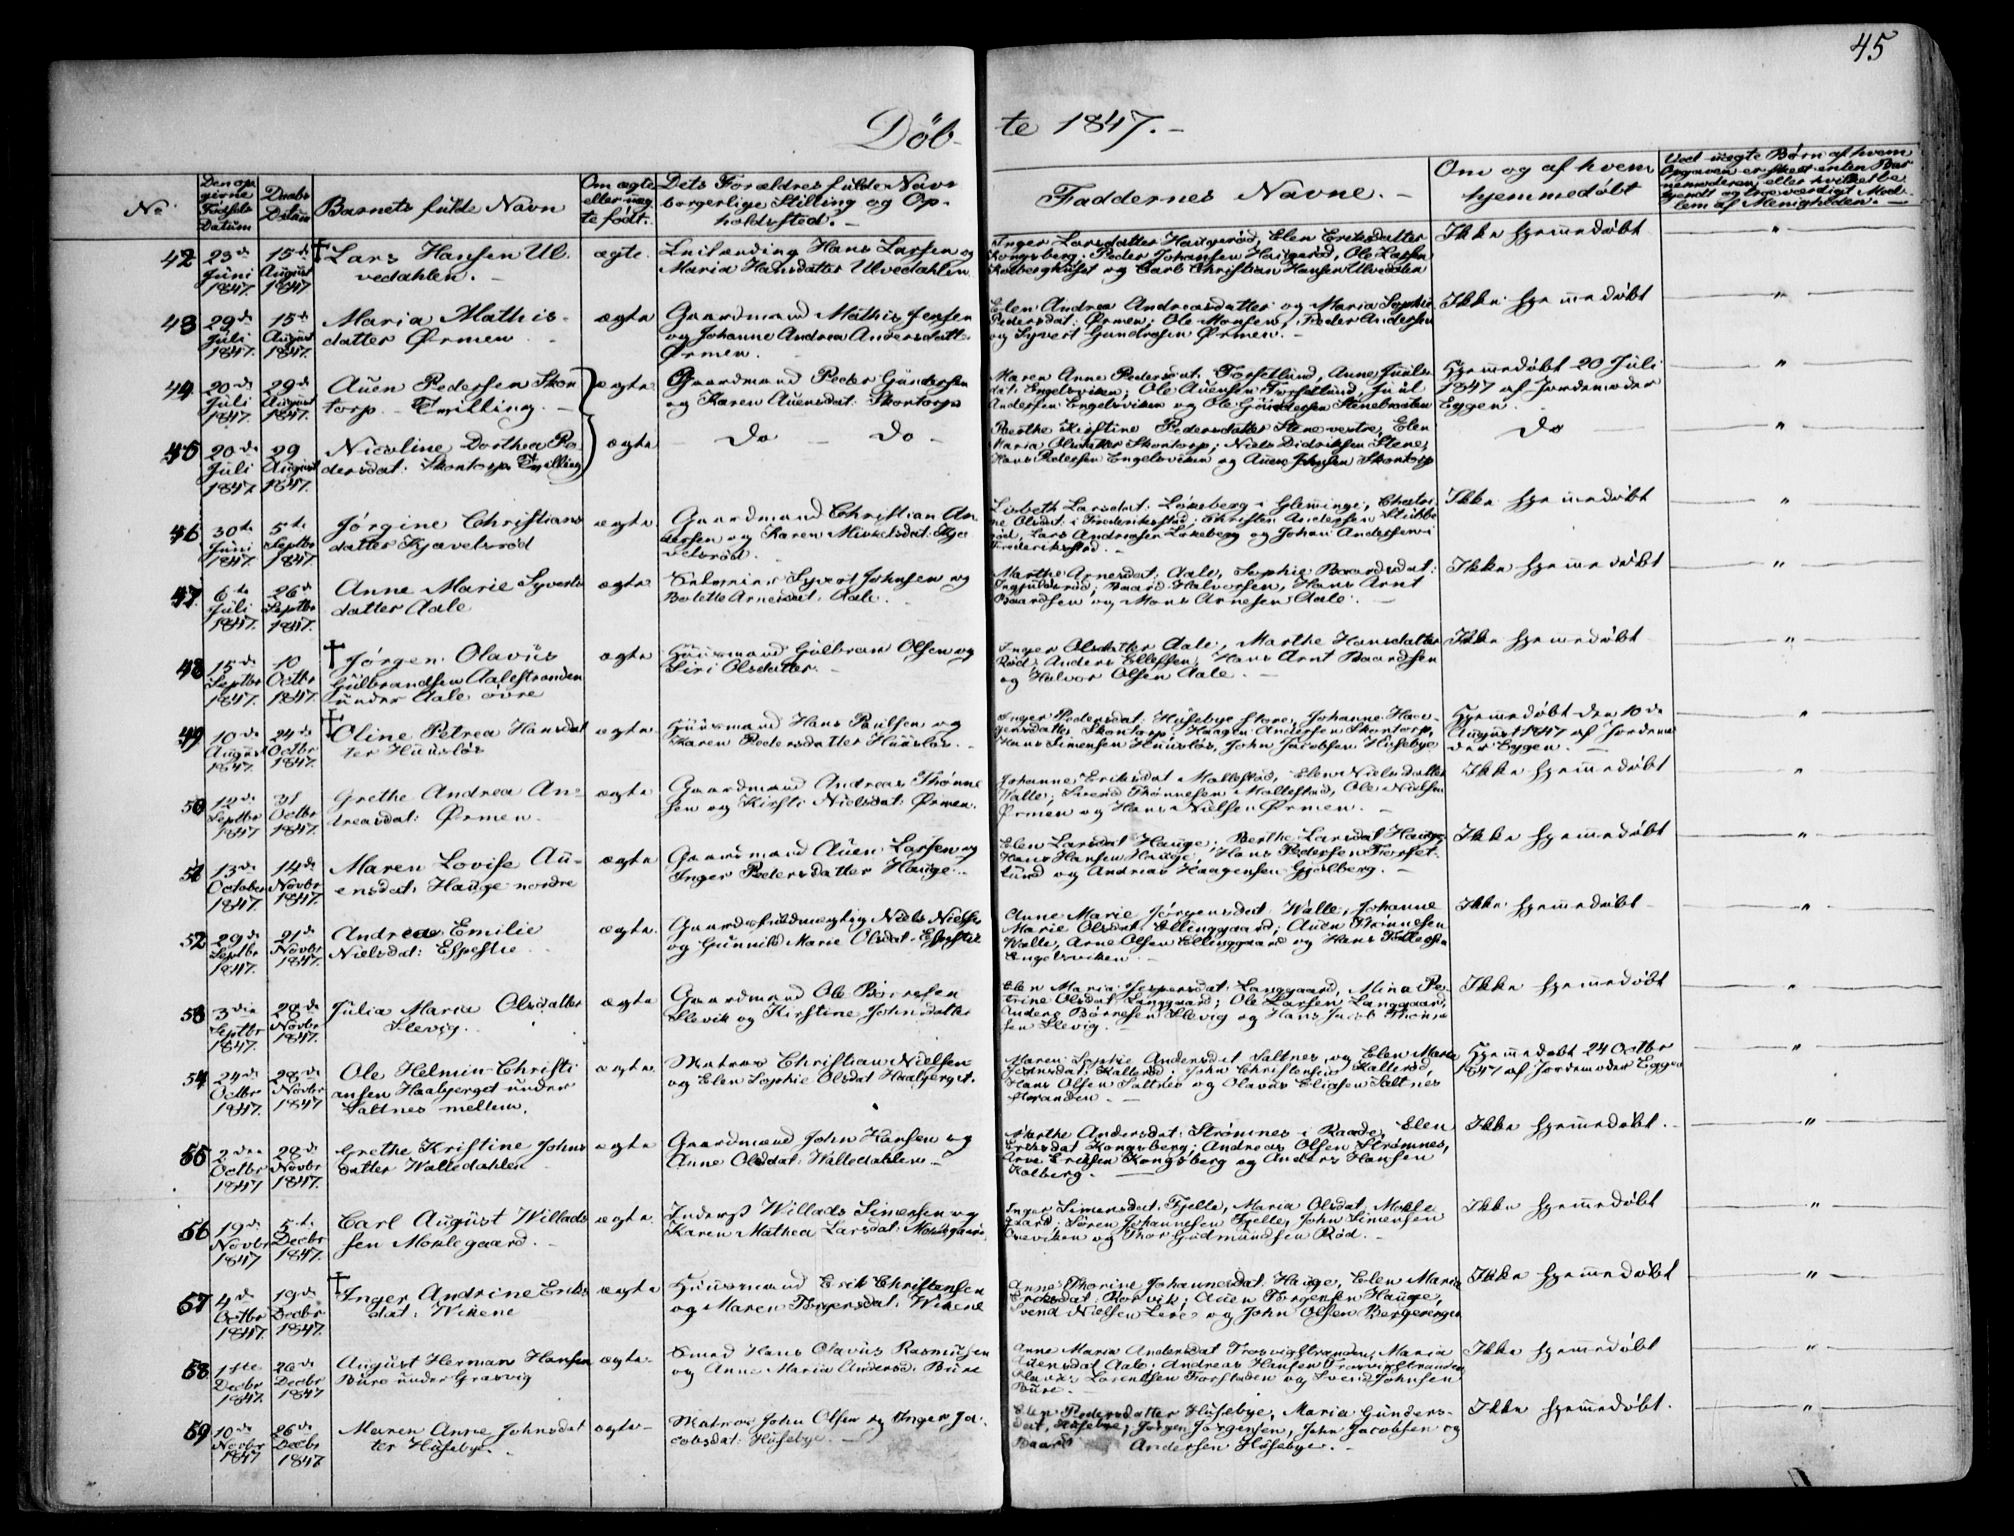 45
Döb- te 1847.-
No
Den op
givne
Fødsels
Datum
Daabs
Datum
Barnets fulde Navn
Om ægte
eller uæg
te født.
Dets Forældres fulde Navn
borgerlige Stilling og Op-
holdssted.-
Faddernes Navne.-
Om og af hvem
hjemmedøbt
Ved uægte Børn af hvem
Opgaven er skeet enten Bar
nemoderen eller hvilket be
kjendt og troeværdigt Med
lem af Menigheden.-
42 23de Juni 1847. 15de August 1847
†Lars Hansen Ul
vedahlen.-
ægte.
Leilænding Hans Larsen og
Maria Hansdatter Ulvedahlen
Inger Larsdatter Haugerød, Elen Eriksdatter
Kongsberg. Peder Johansen Haugerød, Ole Larsen
Kolberghuset og Carl Christian Hansen Ulvedalen
Ikke hjemmedøbt "
43 29de Juli 1847. 15de August 1847.
Maria Mathis-
datter Ørmen.
ægte
Gaardmand Mathis Jensen
og Johanne Andrea Andersdatt.
Ørmen.
Elen Andrea Andreasdatter og Maria Sophie
Pedersdat: Ørmen; Ole Monsen, Peder Andersen
og Syvert Gundrosen Ørmen.-
Ikke hjemmedøbt "
44 20de Juli 1847. 29de August 1847.
Auen Pedersen Skon
torp.- Tvilling.-
ægte
Gaardmand Peder Gundersen
og Karen Auensdat: Skontorp
Maren Anne Pedersdat: Torsetlund, Anne Juuls
dat: Engelsviken; Ole Auensen Torsetlund, Juul
Andersen Engelsviken og Ole Gundersen Stenebraaten
Hjemmedøbt 20 Juli
1847 af Jordemoder
Eggen. "
45 20de Juli 1847 29 August 1847.
Nicoline Dorthea Pe
dersdat: Skontorp Tvilling
ægte
- Do - Do -
Berthe Kristine Pedersdatter Stene vestre, Elen
Maria Olsdatter Skontorp; Niels Didriksen Stene,
Hans Pedersen Engelsviken og Auen Johnsen Skontorp
Do "
46 30te Juni 1847. 5te Septbr 1847.
Jørgine Christians
datter Kjævelsrød
ægte
Gaardmand Christian An
dersen og Karen Mikkelsdat: Kjæ
velsrød.
Lisbeth Larsdat: Løkeberg i Glemminge, Chatri
ne Olsdat: i Frederiksstad; Christen Andersen Stibbs
rød, Lars Andreasen Løkeberg og Johan Andersen i
Frederiksstad.-
Ikke hjemmedøbt "
47. 6te Juli 1847. 26de Septbr 1847.
Anne Marie Syverts
datter Aale
ægte
Syvert Johnsen og
Bolette Arnesdat: Aale.
Marthe Arnesdat: Aale, Sophie Baardsdat:
Ingjulsrød; Baard Halvorsen, Hans Arnt
Baardsen og Mons Arnesen Aale.-
Ikke hjemmedøbt "
48 15de Septbr 1847. 10 Octbr 1847.
†Jørgen Olavus
Gulbrandsen Aalestranden
under Aale øvre
ægte
Huusmand Gulbran Olsen og
Siri Olsdatter.-
Inger Olsdatter Aale, Marthe Hansdatter
Rød; Anders Ellefsen, Hans Arnt Baardsen
og Halvor Olsen Aale.-
Ikke hjemmedøbt "
49 10de August 1847. 24de Octbr 1847.
†Oline Petrea Hansdat
ter Huusløs
ægte.
Huusmand Hans Paulsen og
Karen Pedersdatter Huusløs.-
Inger Pedersdat: Husebye store, Johanne Haa-
gensdatter Skontorp; Haagen Andersen Skontorp,
Hans Simensen Huusløs, John Jacobsen Husebye
Hjemmedøbt den 10de
August 1847 af Jordemo
der Eggen.- "
50 12te Septbr 1847 31 Octbr 1847.
Grethe Andrea An-
dreasdat: Ørmen.
ægte
Gaardmand Andreas Thønne
sen og Kirsti Nielsdat: Ørmen.
Johanne Eriksdat Mallestad, Elen Nielsdatter
Walle; Svend Thønnesen Mallestad, Ole Nielsen
Ørmen og Hans Nielsen Ørmen.-
Ikke hjemmedøbt "
51 13de October 1847. 14de Novbr 1847.
Maren Lovise Au-
ensdat: Hauge nordre
ægte
Gaardmand Auen Larsen og
Inger Pedersdatter Hauge.-
Elen Larsdat Hauge, Berthe Larsdat Hauge
Hans Hansen Hauge, Hans Pedersen Torset-
lund og Andreas Haagensen Gjølberg.-
Ikke hjemmedøbt "
52 29de Septbr 1847. 21de Novbr 1847.
Andrea Emilie
Nielsdat: Espestie
ægte.
Gaardsfuldmægtig Niels Nielsen
og Gunnild Marie Olsdat: Espestie
Anne Marie Jørgensdat: Walle, Johanne
Marie Olsdat: Ellinggaard; Auen Thønnesen
Walle, Arne Olsen Ellinggaard og Hans
Engelsviken.-
Ikke hjemmedøbt "
53 3die Septbr 1847. 28de Novbr 1847.
Julia Maria Olsdatter
Slevig.
ægte
Gaardmand Ole Børresen
Slevik og Kirstine Johnsdatter
Elen Maria Jespersdat: Langgaard, Mina Pe
trine Olsdat: Langgaard; Ole Larsen Langgaard,
Anders Børresen Slevig og Hans Jacob Thønne
sen Slevig.-
Ikke hjemmedøbt "
54 24de Octbr 1847. 28de Novbr 1847
Ole Helmin Christi
ansen Haabjerget under
Saltnes mellem.
ægte
Matros Christian Nielsen
og Elen Sophie Olsdat Haabjerget.
Maren Sophie Andersdat Saltnes, og Elen Maria
Johnsdat: Kallerød; John Christensen Kallerød,
Hans Olsen Saltnes og Olavus Eliasen Saltnes
stranden.-
Hjemmedøbt 24 Octbr
1847 af Jordemoder Eggen "
55 2den Octbr 1847 28de Novbr 1847.
Grethe Kristine Johns
datter Walledahlen
ægte
Gaardmand John Hansen og
Anne Olsdat: Walledahlen.-
Marthe Andersdat: Strømnes i Raade, Elen
Eriksdat Kongsberg; Andreas Olsen Strømnes,
Arve Eriksen Kongsberg og Anders Hansen
Kolberg.-
Ikke hjemmedøbt. "
56 19de Novbr 1847 5te Decbr 1847.
Carl August Willads
sen Moklegaard.-
ægte.
Inderst Willads Simensen og
Karen Mathea Larsdat: Moklegaard.
Inger Simensdat: Fjelle, Maria Olsdat: Mokle
gaard; Søren Johannesen Fjelle, John Simensen
Oreviken og Thor Gudmundsen Rød.-
Ikke hjemmedøbt "
57 4de Octbr 1847 19de Decbr 1847.
†Inger Andrine Eriks
dat: Wikene
ægte
Huusmand Erik Christensen
og Maren Torgersdat: Wikene
Anne Thorine Johannesdat: Hauge, Elen Maria
Eriksdat: Rosvik; Auen Torgersen Hauge,
Svend Nielsen Lere og John Olsen Bergeenger
Ikke hjemmedøbt "
58 1ste Decbr 1847. 26de Decbr 1847
August Herman Hansen
Bure under Græsvig
ægte.
Smed Hans Olavus Rasmussen
og Anne Maria Andersd: Bure
Anne Maria Andersdat Trosvigstranden, Maria
Auensdat Aale; Andreas Hansen Trosvigstranden,
Olavus Lorentsen Torstaden og Svend Johnsen
Bure.-
Ikke hjemmedøbt "
59 10de Novbr 1847 26de Decbr 1847
Maren Anne Johnsdat
ter Husebye.
ægte-
Matros John Olsen og Inger Ja-
cobsdat: Husebye.-
Elen Pedersdatter Husebye, Maria Gunders-
dat: Husebye; Jørgen Jørgensen, John Jacobsen og
Baard Andersen Husebye.-
Ikke hjemmedøbt. "